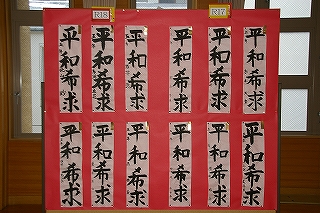 R18
R17
平和希求
平和希求
平和希求
平和希求
平和希求
平和希求
平和希求
平和希求
平和希求
平和希求
平和希求
平和希求